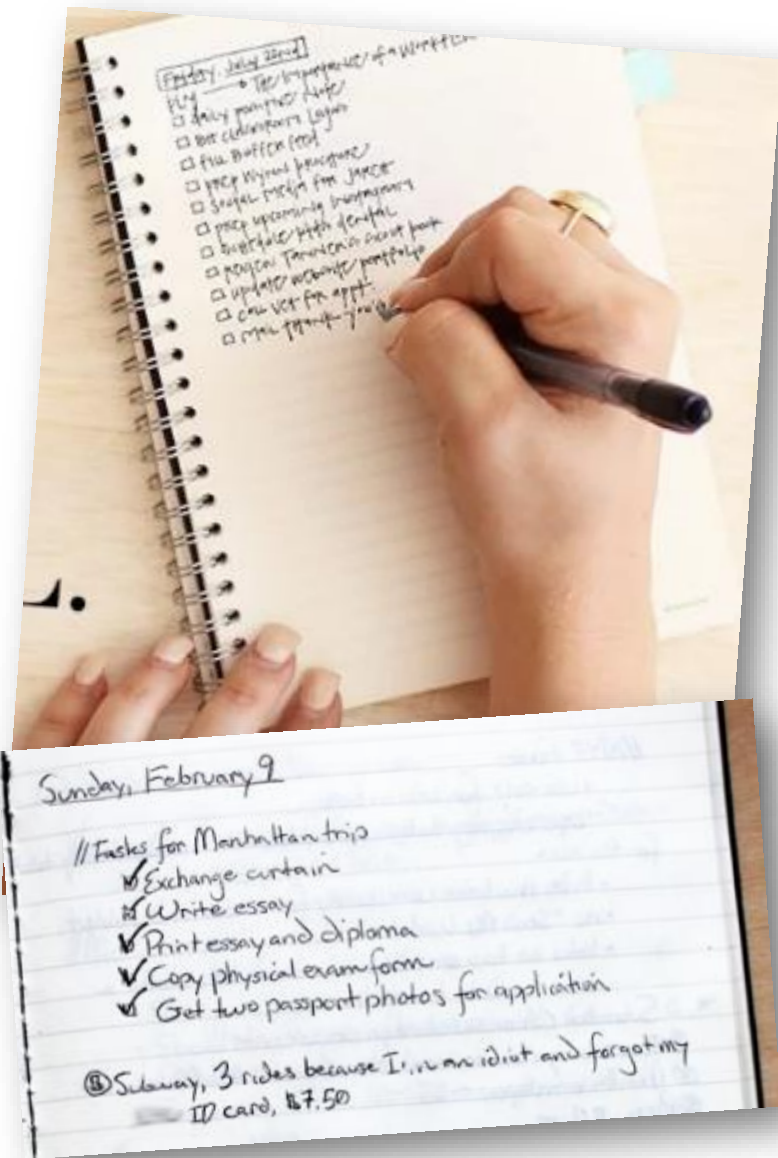 Friday, July 22nd
The Importance of a
daily positive note
fill Buffer feed
prep procedure
social media for
prep upcoming
schedule dental
update website portfolio
call vet for appt.
mail thank you
L.
Sunday, February 9
// Tasks for Manhattan trip
Exchange curtain
Write essay
Print essay and diploma
Copy physical exam form
Get two passport photos for application
$ Subway, 3 rides because I'm an idiot and forgot my
ID card, $7.50